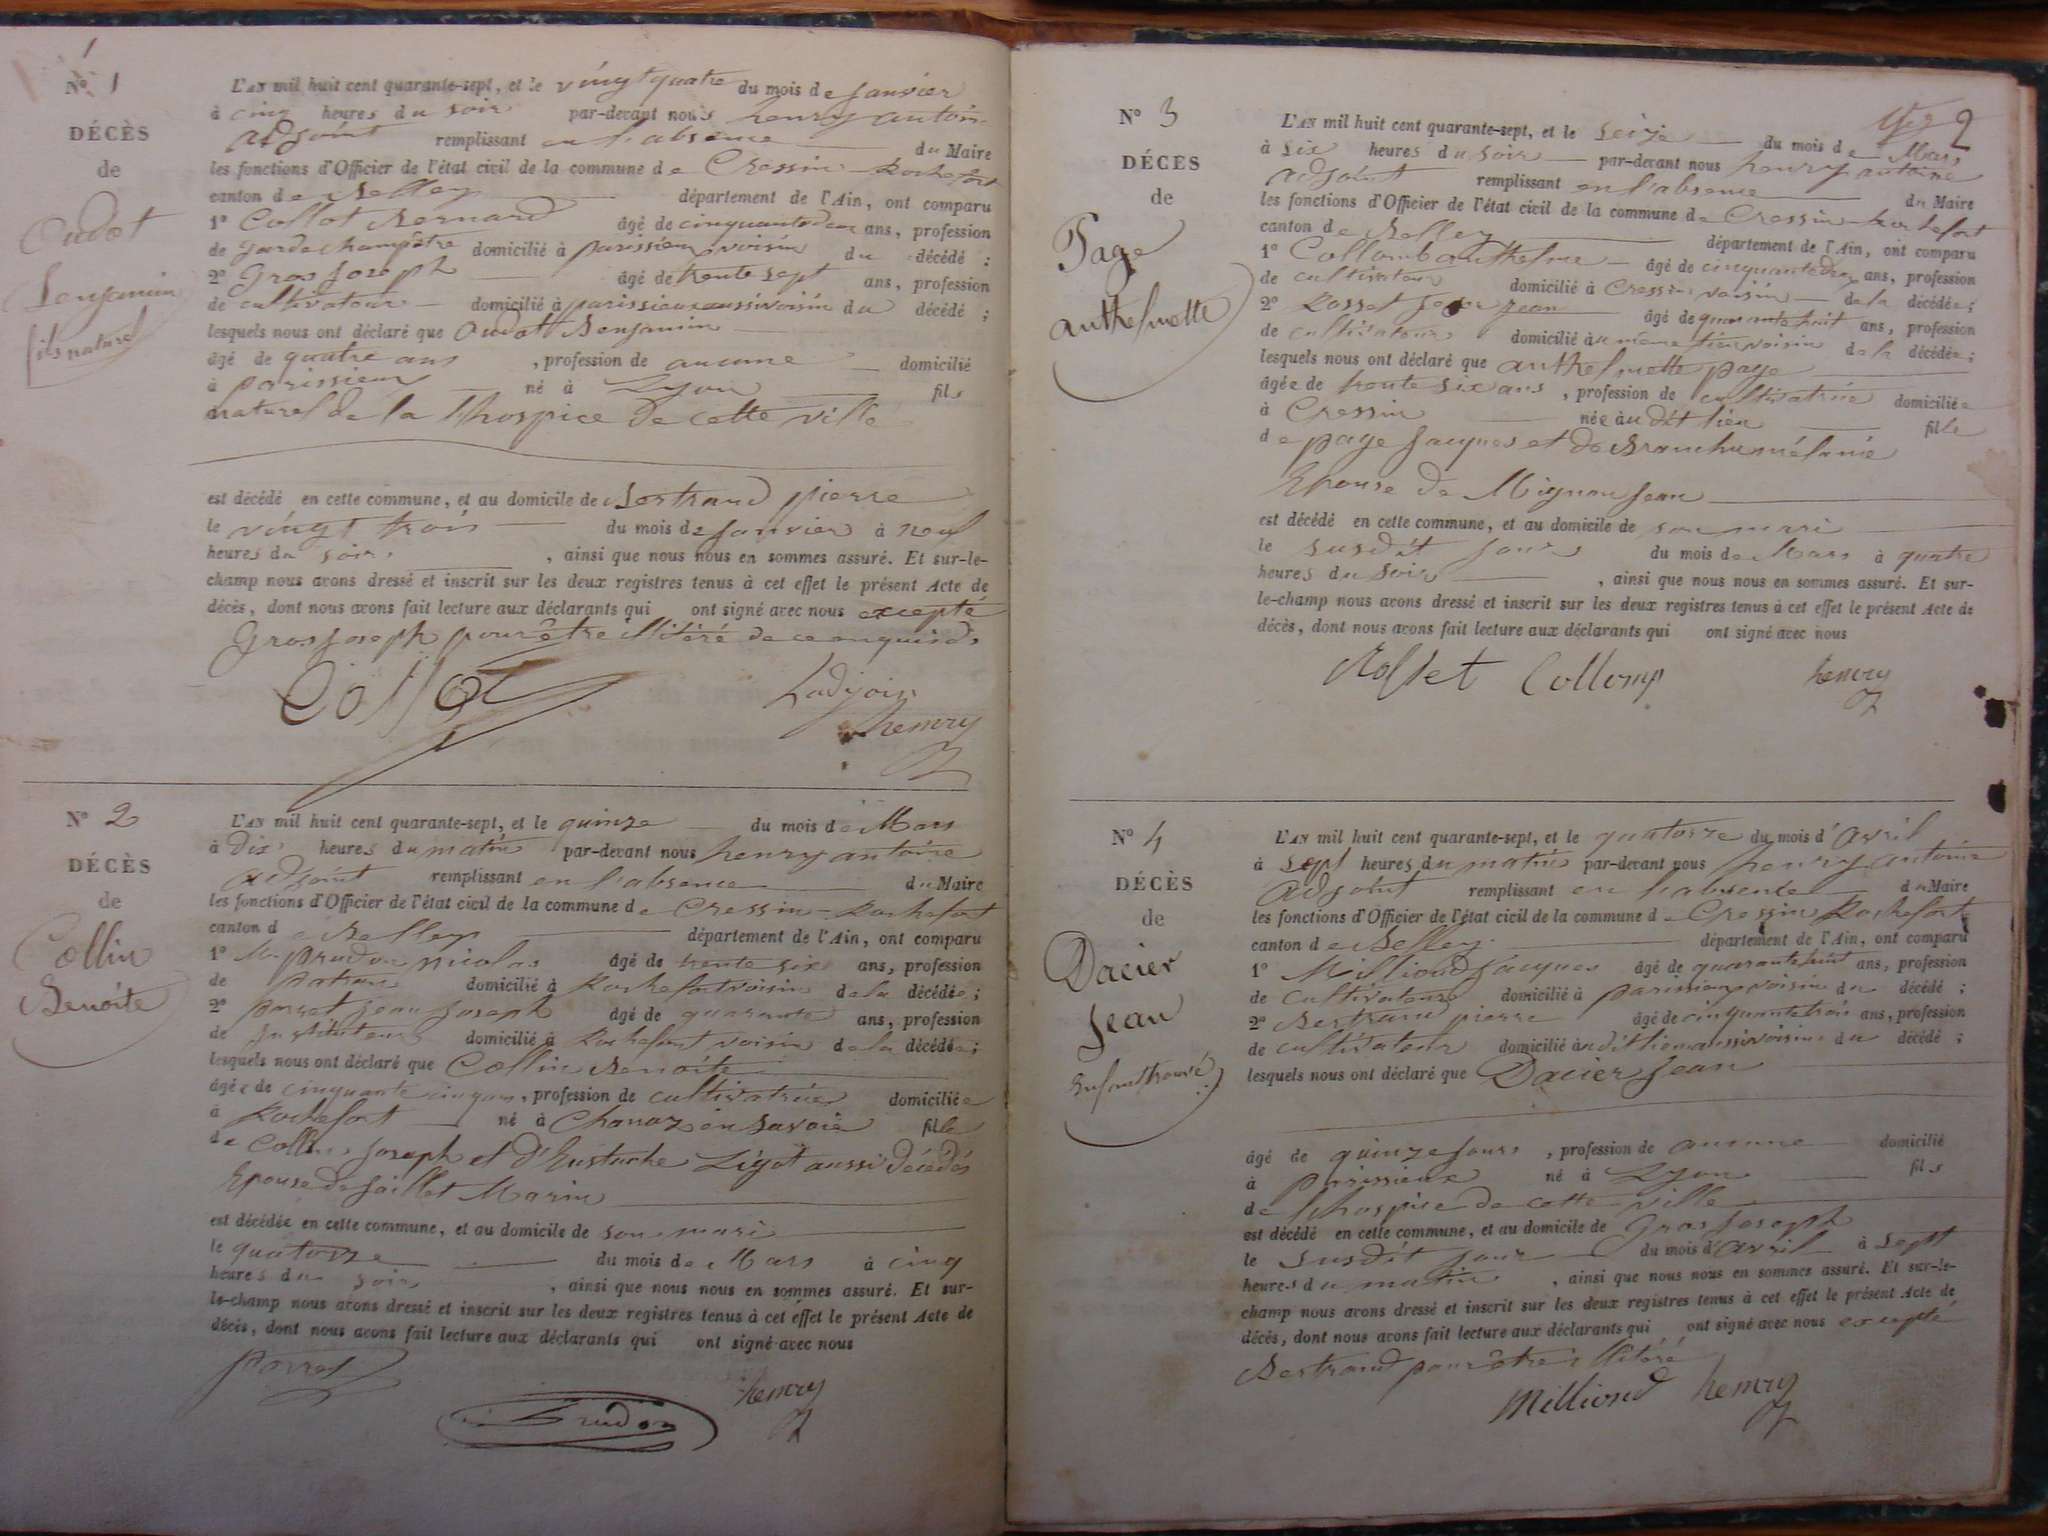 1
Nº 1
DÉCÈS
de
Oudot
Benjamin
fils naturel
L'AN mil huit cent quarante-sept, et le vingt quatre du mois de Janvier
à cinq heures du soir par-devant nous henry antoin
adjoint remplissant en l'absence du Maire
les fonctions d'Officier de l'état civil de la commune de Cressin-Rochefort
canton de Belley département de l'Ain, ont comparu
1º Collot Bernard âgé de cinquante deux ans, profession
de garde champêtre domicilié à parissieux voisin du décédé ;
2º Gros Joseph âgé de trente sept ans, profession
de cultivateur domicilié à parissieux aussi voisin du décédé ;
lesquels nous ont déclaré que oudot Benjamin
âgé de quatre ans , profession de aucune domicilié
à parissieux né à Lyon fils
naturel de la l'hospice de cette ville
est décédé en cette commune, et au domicile de Bertrand pierre
le vingt trois du mois de Janvier à neuf
heures du soir , ainsi que nous nous en sommes assuré. Et sur-le-
champ nous avons dressé et inscrit sur les deux registres tenus à cet effet le présent Acte de
décès, dont nous avons fait lecture aux déclarants qui ont signé avec nous excepté
Gros Joseph pour être illitéré de ce enquis
Collot Ladjoin
henry
Nº 2
DÉCÈS
de
Collin
Benoite
L'AN mil huit cent quarante-sept, et le quinze du mois de Mars
à dix heures du matin par-devant nous henry antoine
adjoint remplissant en l'absence du Maire
les fonctions d'Officier de l'état civil de la commune de Cressin-Rochefort
canton de Belley département de l'Ain, ont comparu
1º prudon nicolas âgé de trente six ans, profession
de patron domicilié à Rochefort voisin de la décédée ;
2º porret jean Joseph âgé de quarante ans, profession
de Instituteur domicilié à Rochefort voisin de la décédée ;
lesquels nous ont déclaré que Collin Benoite
âgée de cinquante cinq ans, profession de cultivatrice domiciliée
à Rochefort né à Chanaz en Savoie fille
de Collin Joseph et d'Eustache Ligot aussi décédés
Epouse de Jaillet Marin
est décédée en cette commune, et au domicile de son mari
le quatorze du mois de Mars à cinq
heures du soir , ainsi que nous nous en sommes assuré. Et sur-
le-champ nous avons dressé et inscrit sur les deux registres tenus à cet effet le présent Acte de
décès, dont nous avons fait lecture aux déclarants qui ont signé avec nous
porret
Prudon henry
2
Nº 3
DÉCÈS
de
Page
anthelmette
L'AN mil huit cent quarante-sept, et le seize du mois de Mars
à six heures du soir par-devant nous henry antoine
adjoint remplissant en l'absence du Maire
les fonctions d'Officier de l'état civil de la commune de Cressin-Rochefort
canton de Belley département de l'Ain, ont comparu
1º Collomb anthelme âgé de cinquante deux ans, profession
de cultivateur domicilié à Cressin voisin de la décédée ;
2º Rosset jean âgé de quarante huit ans, profession
de cultivateur domicilié au même lieu voisin de la décédée ;
lesquels nous ont déclaré que anthelmette page
âgée de trente six ans , profession de cultivatrice domiciliée
à Cressin née au dit lieu fille
de page Jacques et de Branchu mélanie
Epouse de Mignon Jean
est décédé en cette commune, et au domicile de son mari
le susdit jour du mois de Mars à quatre
heures du soir , ainsi que nous nous en sommes assuré. Et sur-
le-champ nous avons dressé et inscrit sur les deux registres tenus à cet effet le présent Acte de
décès, dont nous avons fait lecture aux déclarants qui ont signé avec nous
Rosset Collomp henry
Nº 4
DÉCÈS
de
Dacier
Jean
Enfant trouvé
L'AN mil huit cent quarante-sept, et le quatorze du mois d'avril
à sept heures du matin par-devant nous henry antoine
adjoint remplissant en l'absence du Maire
les fonctions d'Officier de l'état civil de la commune de Cressin Rochefort
canton de Belley département de l'Ain, ont comparu
1º Milliond Jacques âgé de quarante huit ans, profession
de cultivateur domicilié à parissieux voisin du décédé ;
2º Bertrand pierre âgé de cinquante trois ans, profession
de cultivateur domicilié au dit lieu aussi voisin du décédé ;
lesquels nous ont déclaré que Dacier Jean
âgé de quinze jours , profession de aucune domicilié
à parissieux né à Lyon fils
de l'hospice de cette ville
est décédé en cette commune, et au domicile de Gros Joseph
le susdit jour du mois d'avril à sept
heures du matin , ainsi que nous nous en sommes assuré. Et sur-le-
champ nous avons dressé et inscrit sur les deux registres tenus à cet effet le présent Acte de
décès, dont nous avons fait lecture aux déclarants qui ont signé avec nous excepté
Bertrand pour être illitéré
Milliond henry